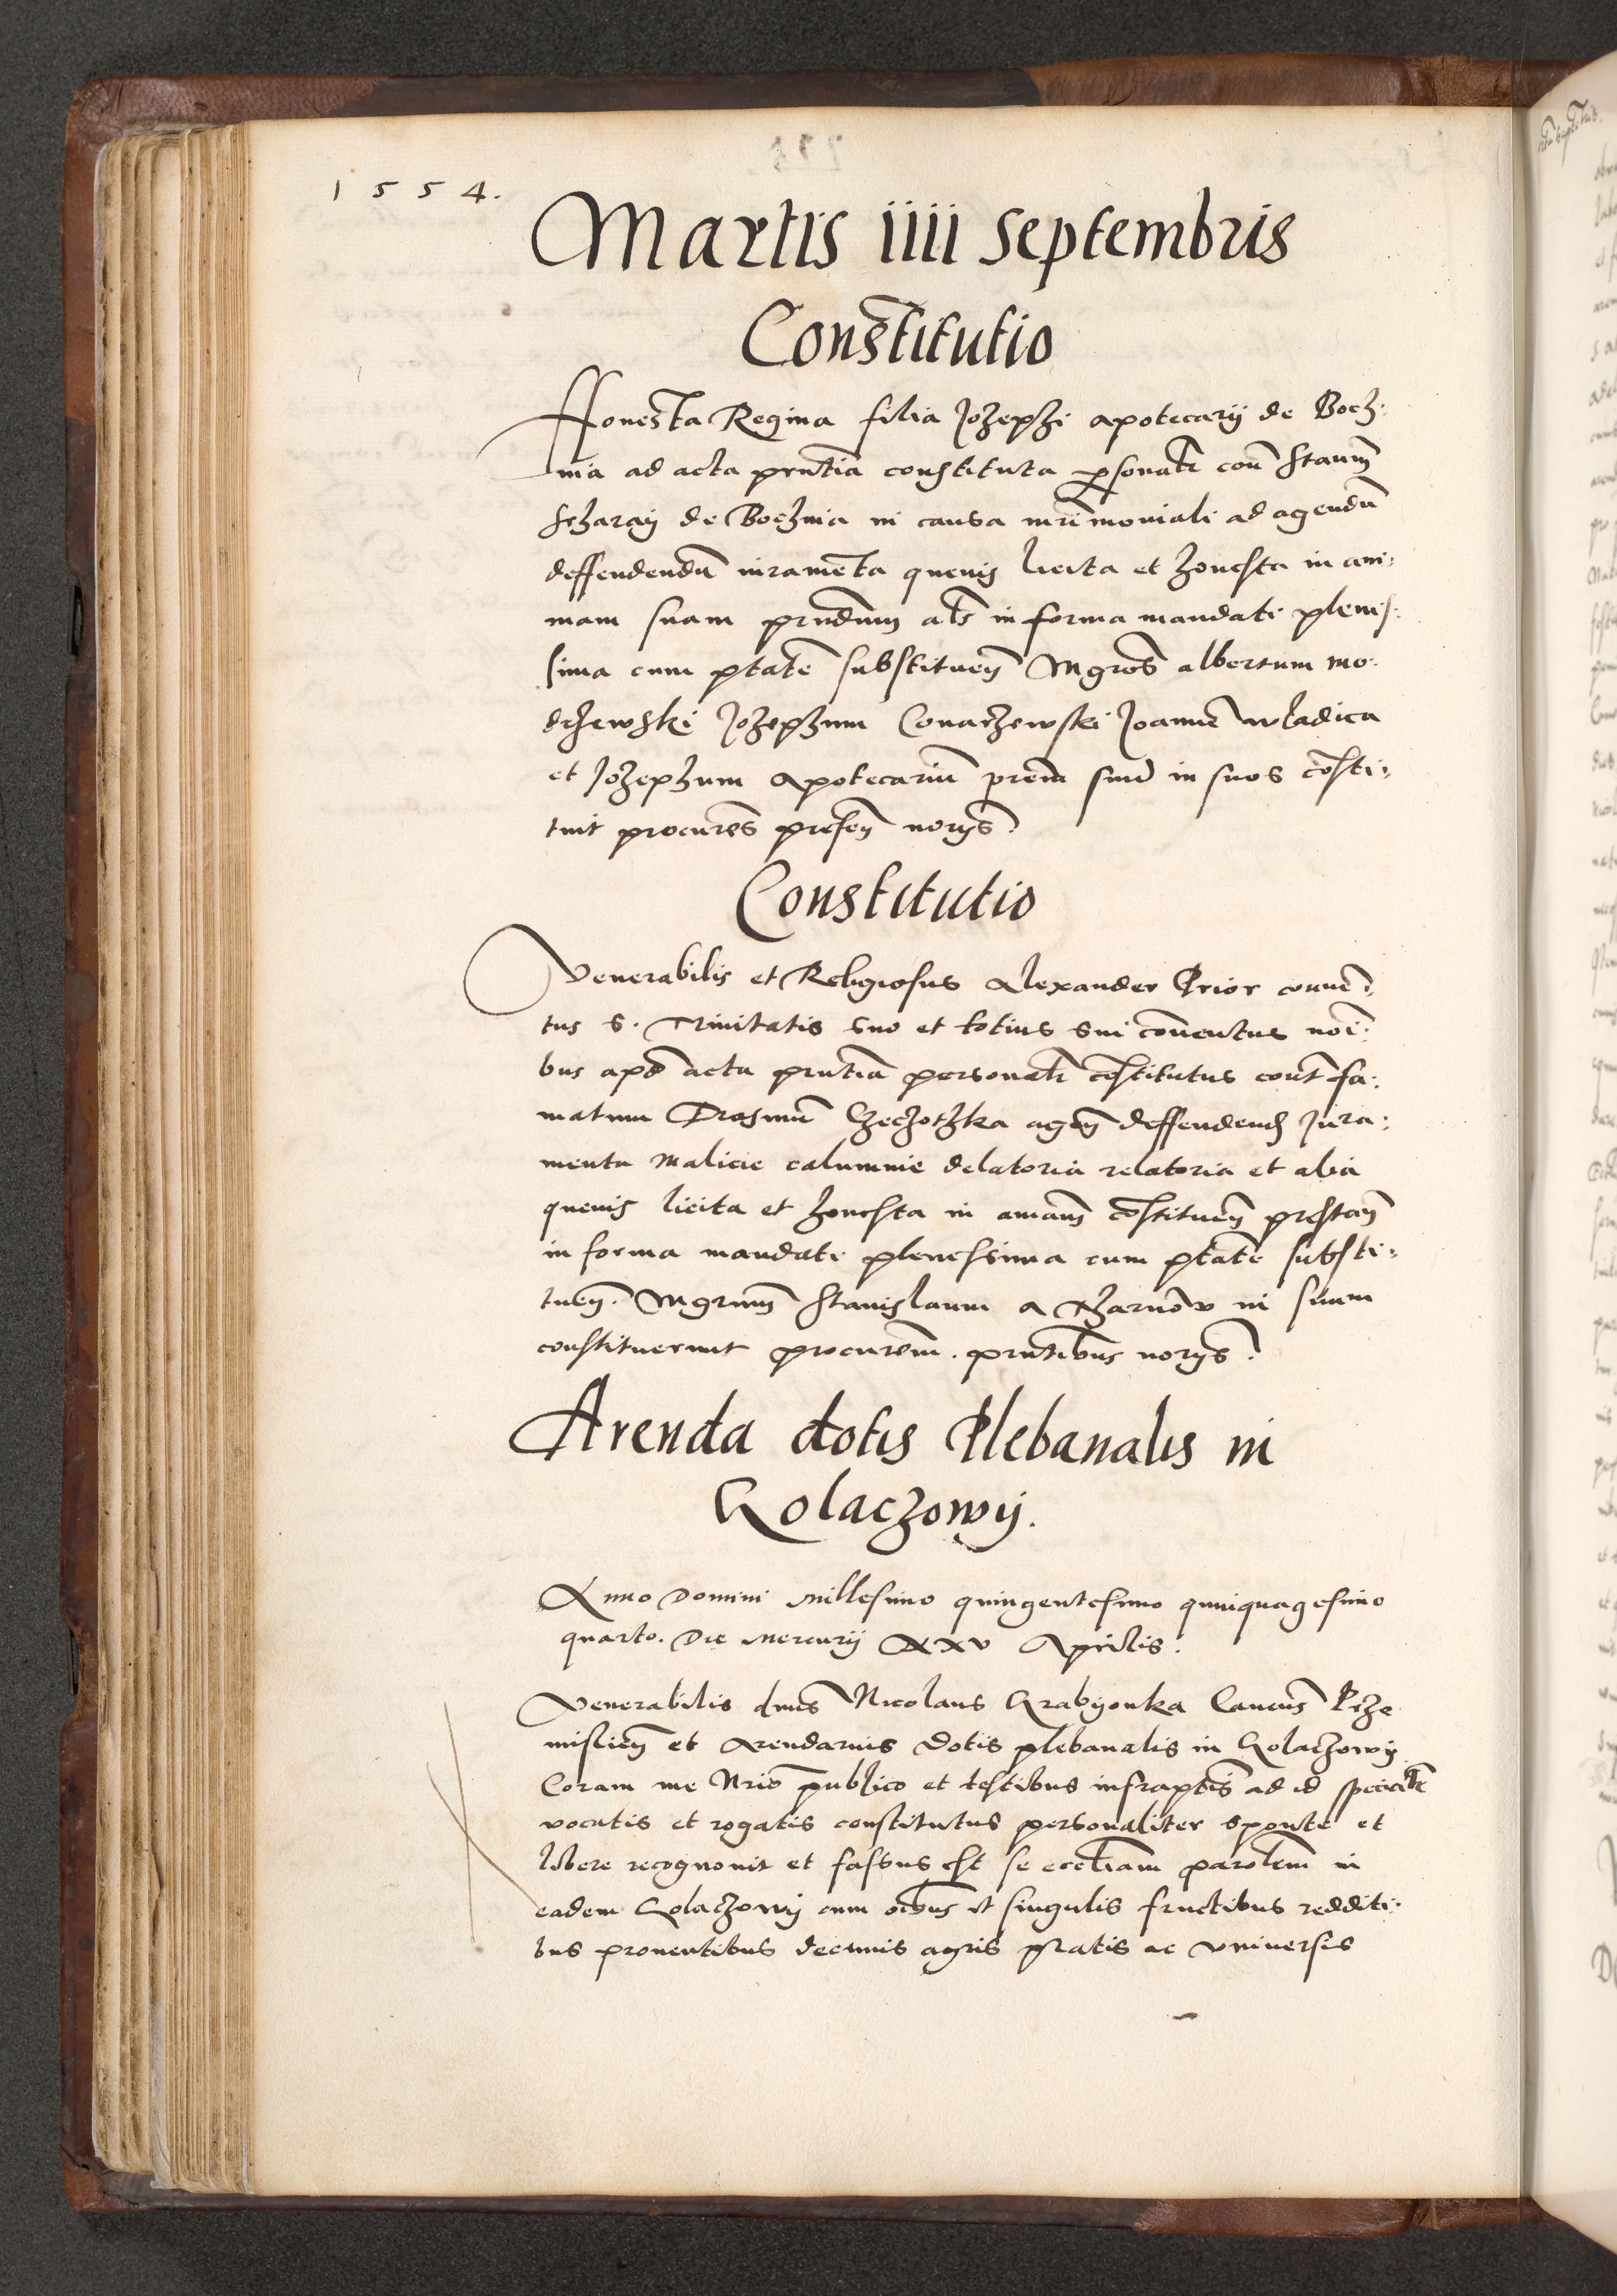 1554.
Martis iiii Septembris
Constitutio
Honesta Regina filia Jozephi apotecarij de Boch-
nia ad acta prntia constituta psonalr con Stanm
de Bochnia in causa mrimoniali ad agendu
deffendendu iurameta quevis licita et honesta in ani-
mam suam prndum als in forma mandati plenis-
sima cum ptate substituen Mgros albertum Mo-
drzewski Jozephum Conarzewski Joanne wladica
et Jozephum Apotecariu prem suu in suos costi-
tuit procures presen norijs
Constitutio
Venerabilis et Religiosus Alexander Prior conue-
tus S. Trinitatis suo et totius sui conuentus noi-
bus apd acta prntia personalr costitutus cont fa-
matum Erasmu Czeczotka agen deffenden Jura-
menta malicie calumnie delatoria relatoria et alia
quevis licita et honesta in aniam costituen prestan
in forma mandati plenissima cum ptate substi-
tuen. Mgrum Stanislaum a in suum
constituerunt procurem. prntibus norijs.
Arenda dotis Plebanalis in
Kolaczowij.
Anno Domini Millesimo quingentesimo quinquagesimo
quarto. Die Mercurij XXV Aprilis.
Venerabilis dnus Nicolaus Grabyonka Cancus Prze
mislien et Arendarius Dotis plebanalis in Kolaczowij
Coram me Nrio publico et testibus infraptis ad id specialr
vocatis et rogatis constitutus personaliter sponte et
libere recognouit et fassus est se eccliam parolem in
eadem Kolaczowij cum oibus et singulis fructibus redditi-
bus prouentibus decimis agris pratis ac vniuersis